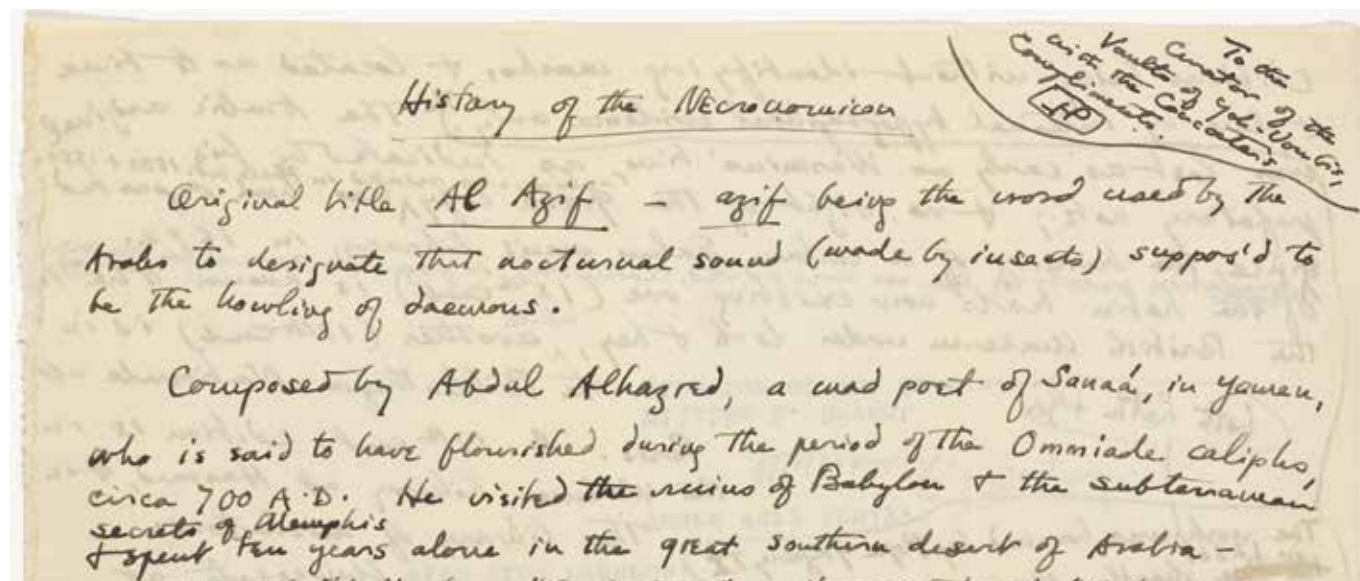 History of the Necronomicon
To the
Curator of the
Vaults of Yoh-Vombis,
with the Concocter's
Compliments.
Original title Al Azif — azif being the word used by the
Arabs to designate that nocturnal sound (made by insects) suppos'd to
be the howling of daemons.
Composed by Abdul Alhazred, a mad poet of Sanaá, in Yemen,
who is said to have flourished during the period of the Ommiade caliphs,
circa 700 A.D. He visited the ruins of Babylon & the subterranean
secrets of Memphis
& spent ten years alone in the great southern desert of Arabia —